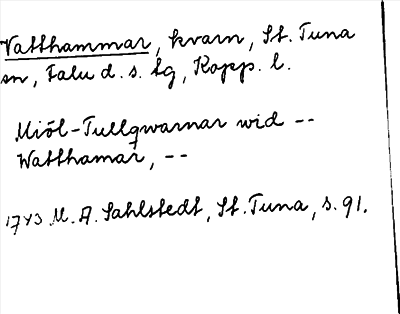 Vatthammar, kvarn, St. Tuna
sn, Falu d. s. lg, Kopp. l.
Miöl-Tullqwarnar wid --
Watthamar, --
1743 M. A. Sahlstedt, St. Tuna, s. 91.